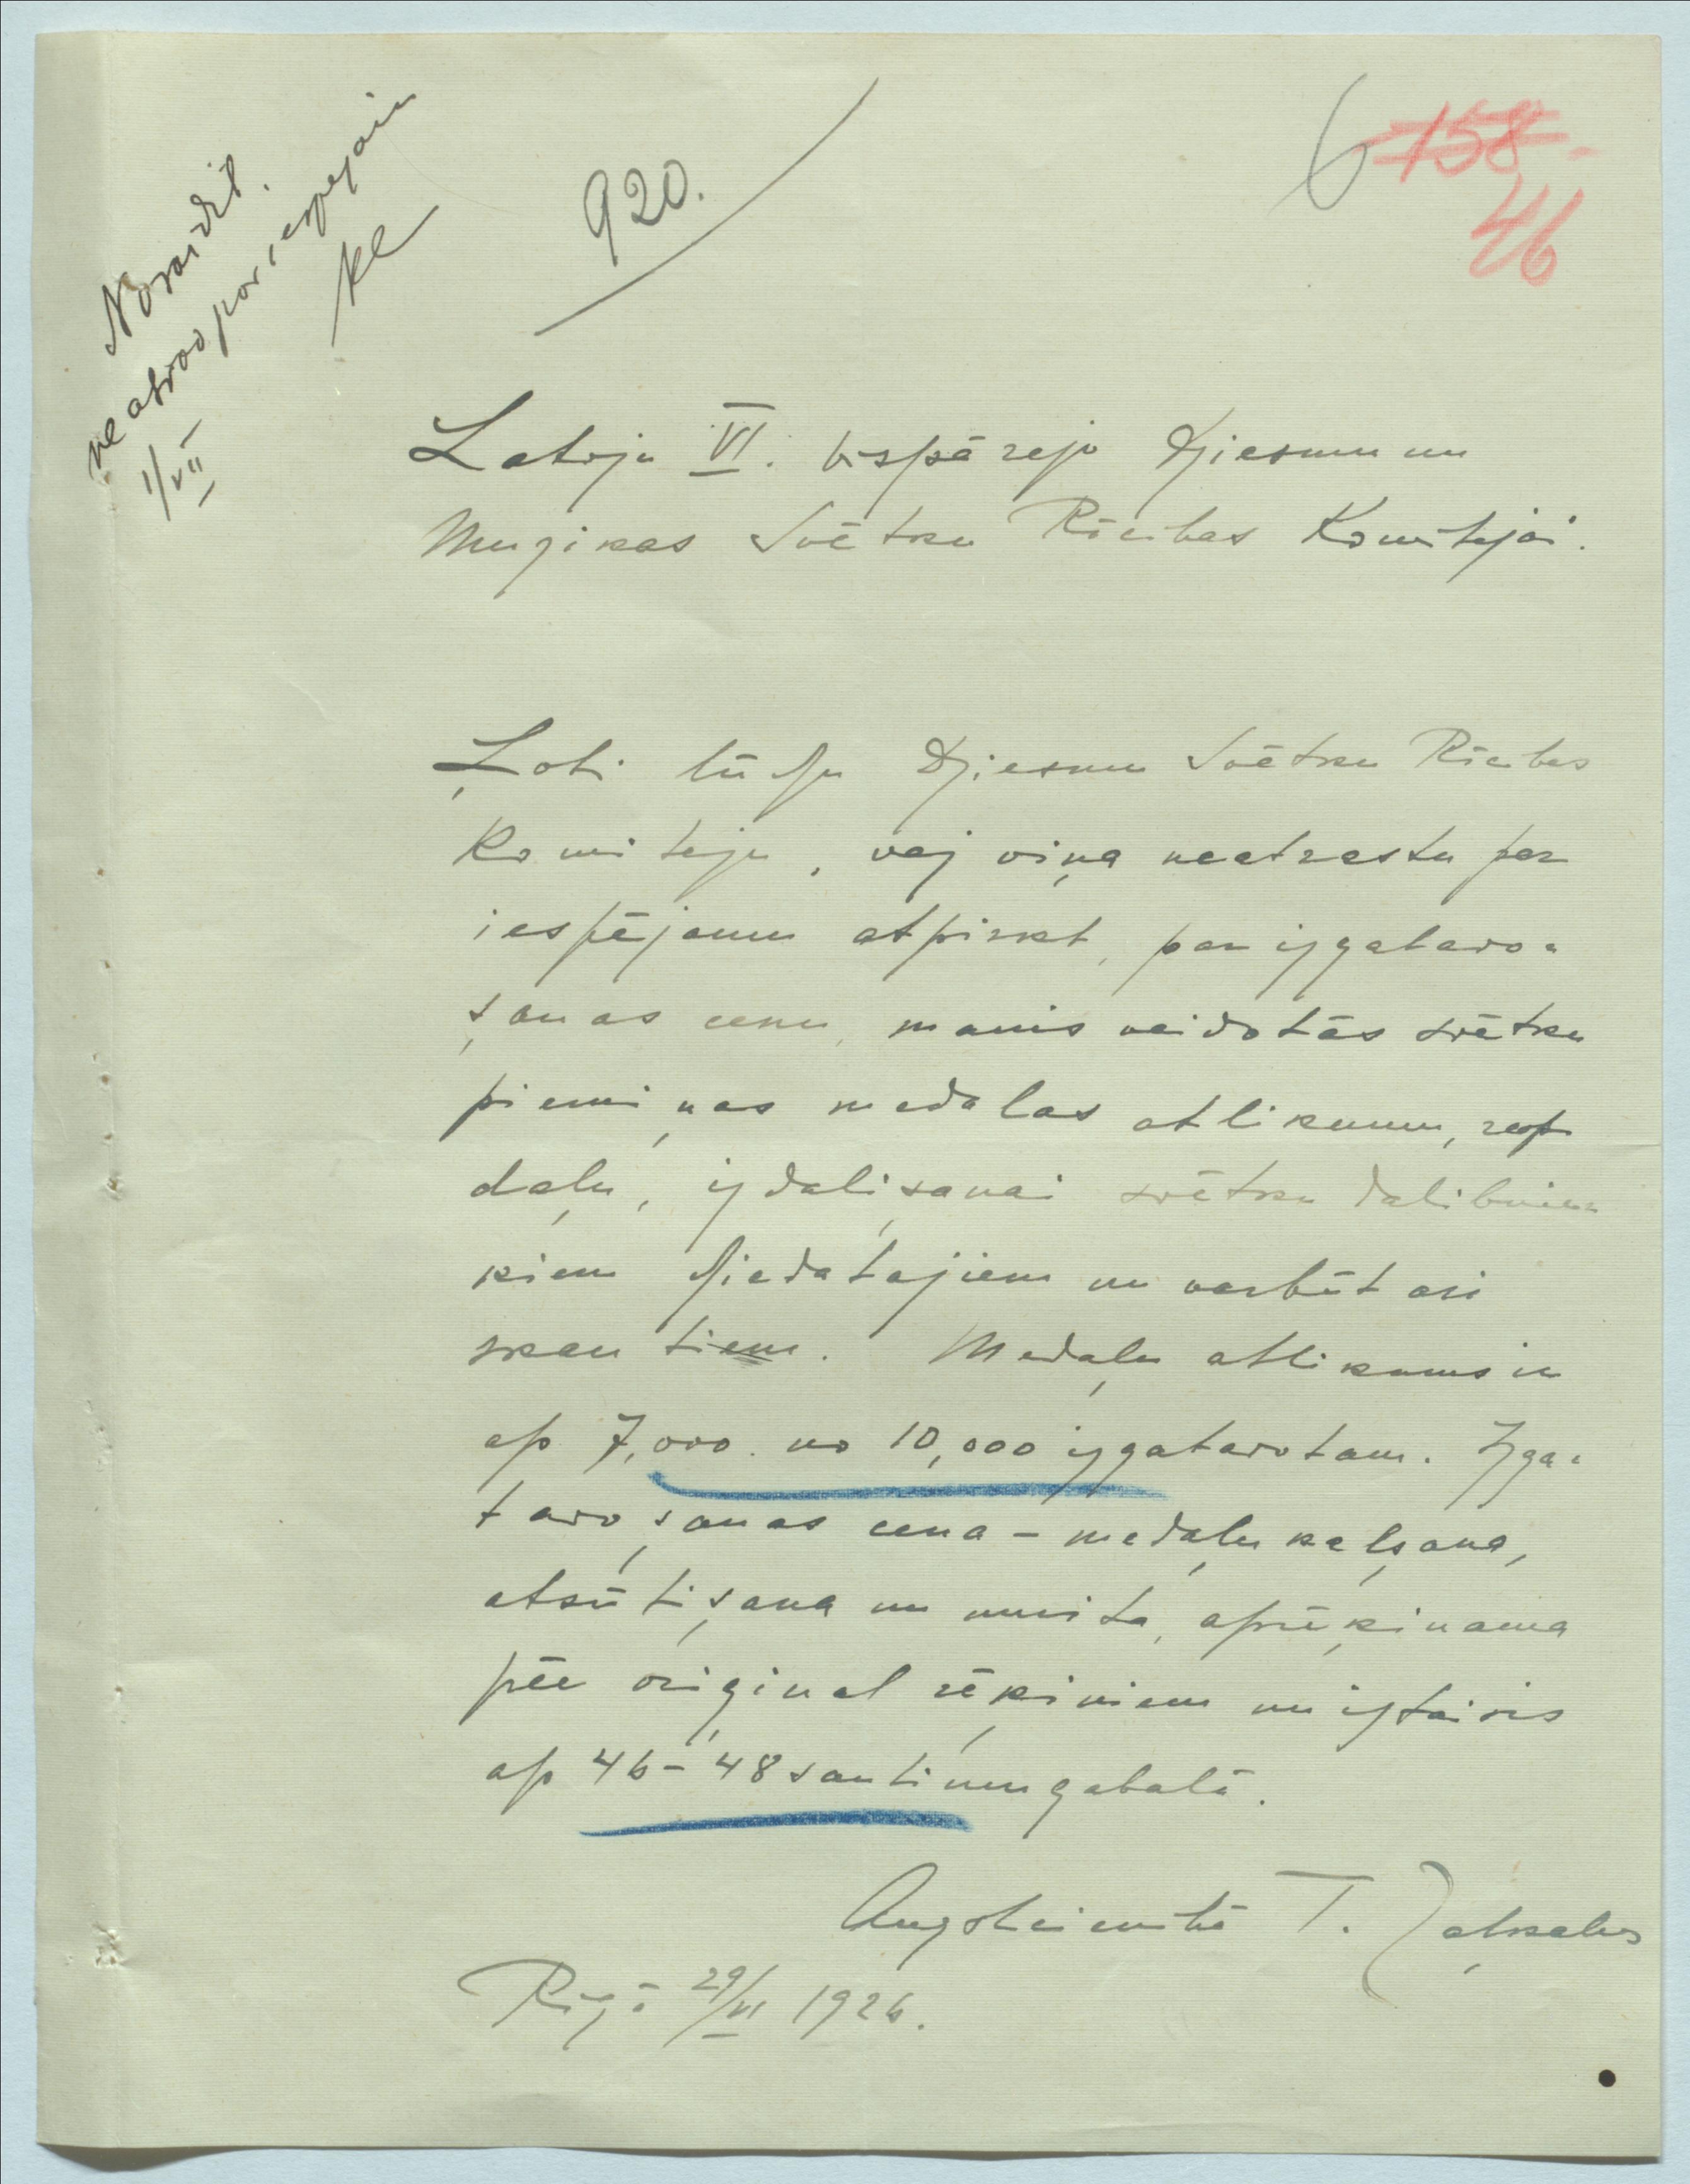 Noraidīt.
ne atrod par iespejam
1/VII
920.
6 158
46
Latvju VI. Vispārejo Dziesmu un
Muzikas Svētku Rīcības Komitejai.
Ļoti lūdzu Dziesmu Svētku Rīcības
Komiteju, vaj viņa neatrastu par
iespējamu atpirkt, par izgatavo-
šanas cenu, manis veidotās svētku
piemiņas medaļas atlikumu, resp
daļu, izdališanai svētku dalibnie-
kiem dziedatajiem un varbūt ari
skau tiem. Medaļu atlikums ir
ap 7,000 no 10,000 izgatavotam. Izga-
tavošanas cena – medaļu kalšana,
atsūtišana un muita, aprēķinama
pēc oriģinal rēķiniem un iztaisis
ap 46 – 48 santimu gabalā.
Augstcienībā T. Zaļkalns
Rīgā 29/VI 1926.